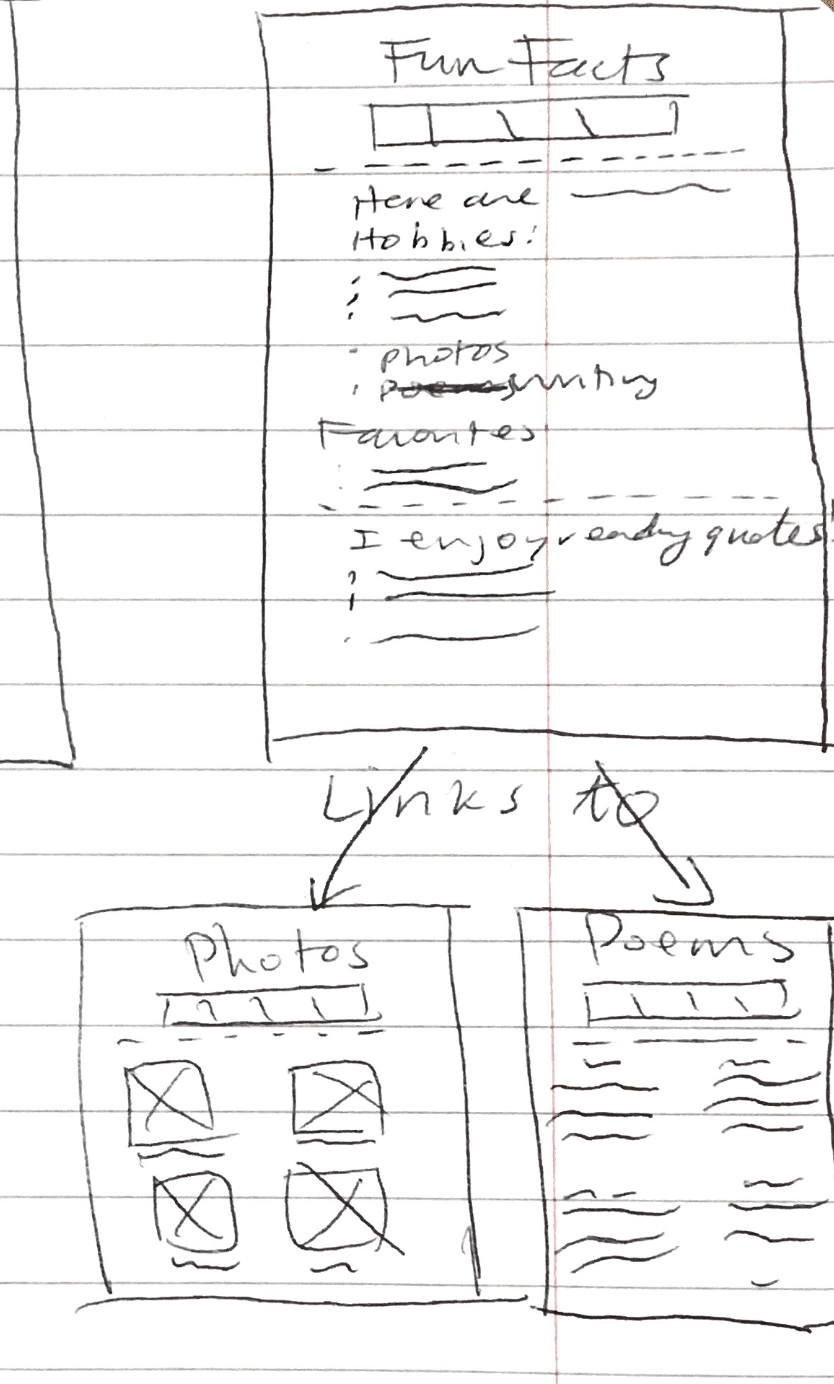 Fun Facts
Here are
Hobbies:
photos
writing
Favorites
I enjoy reading quotes!
Links to
Photos
Poems